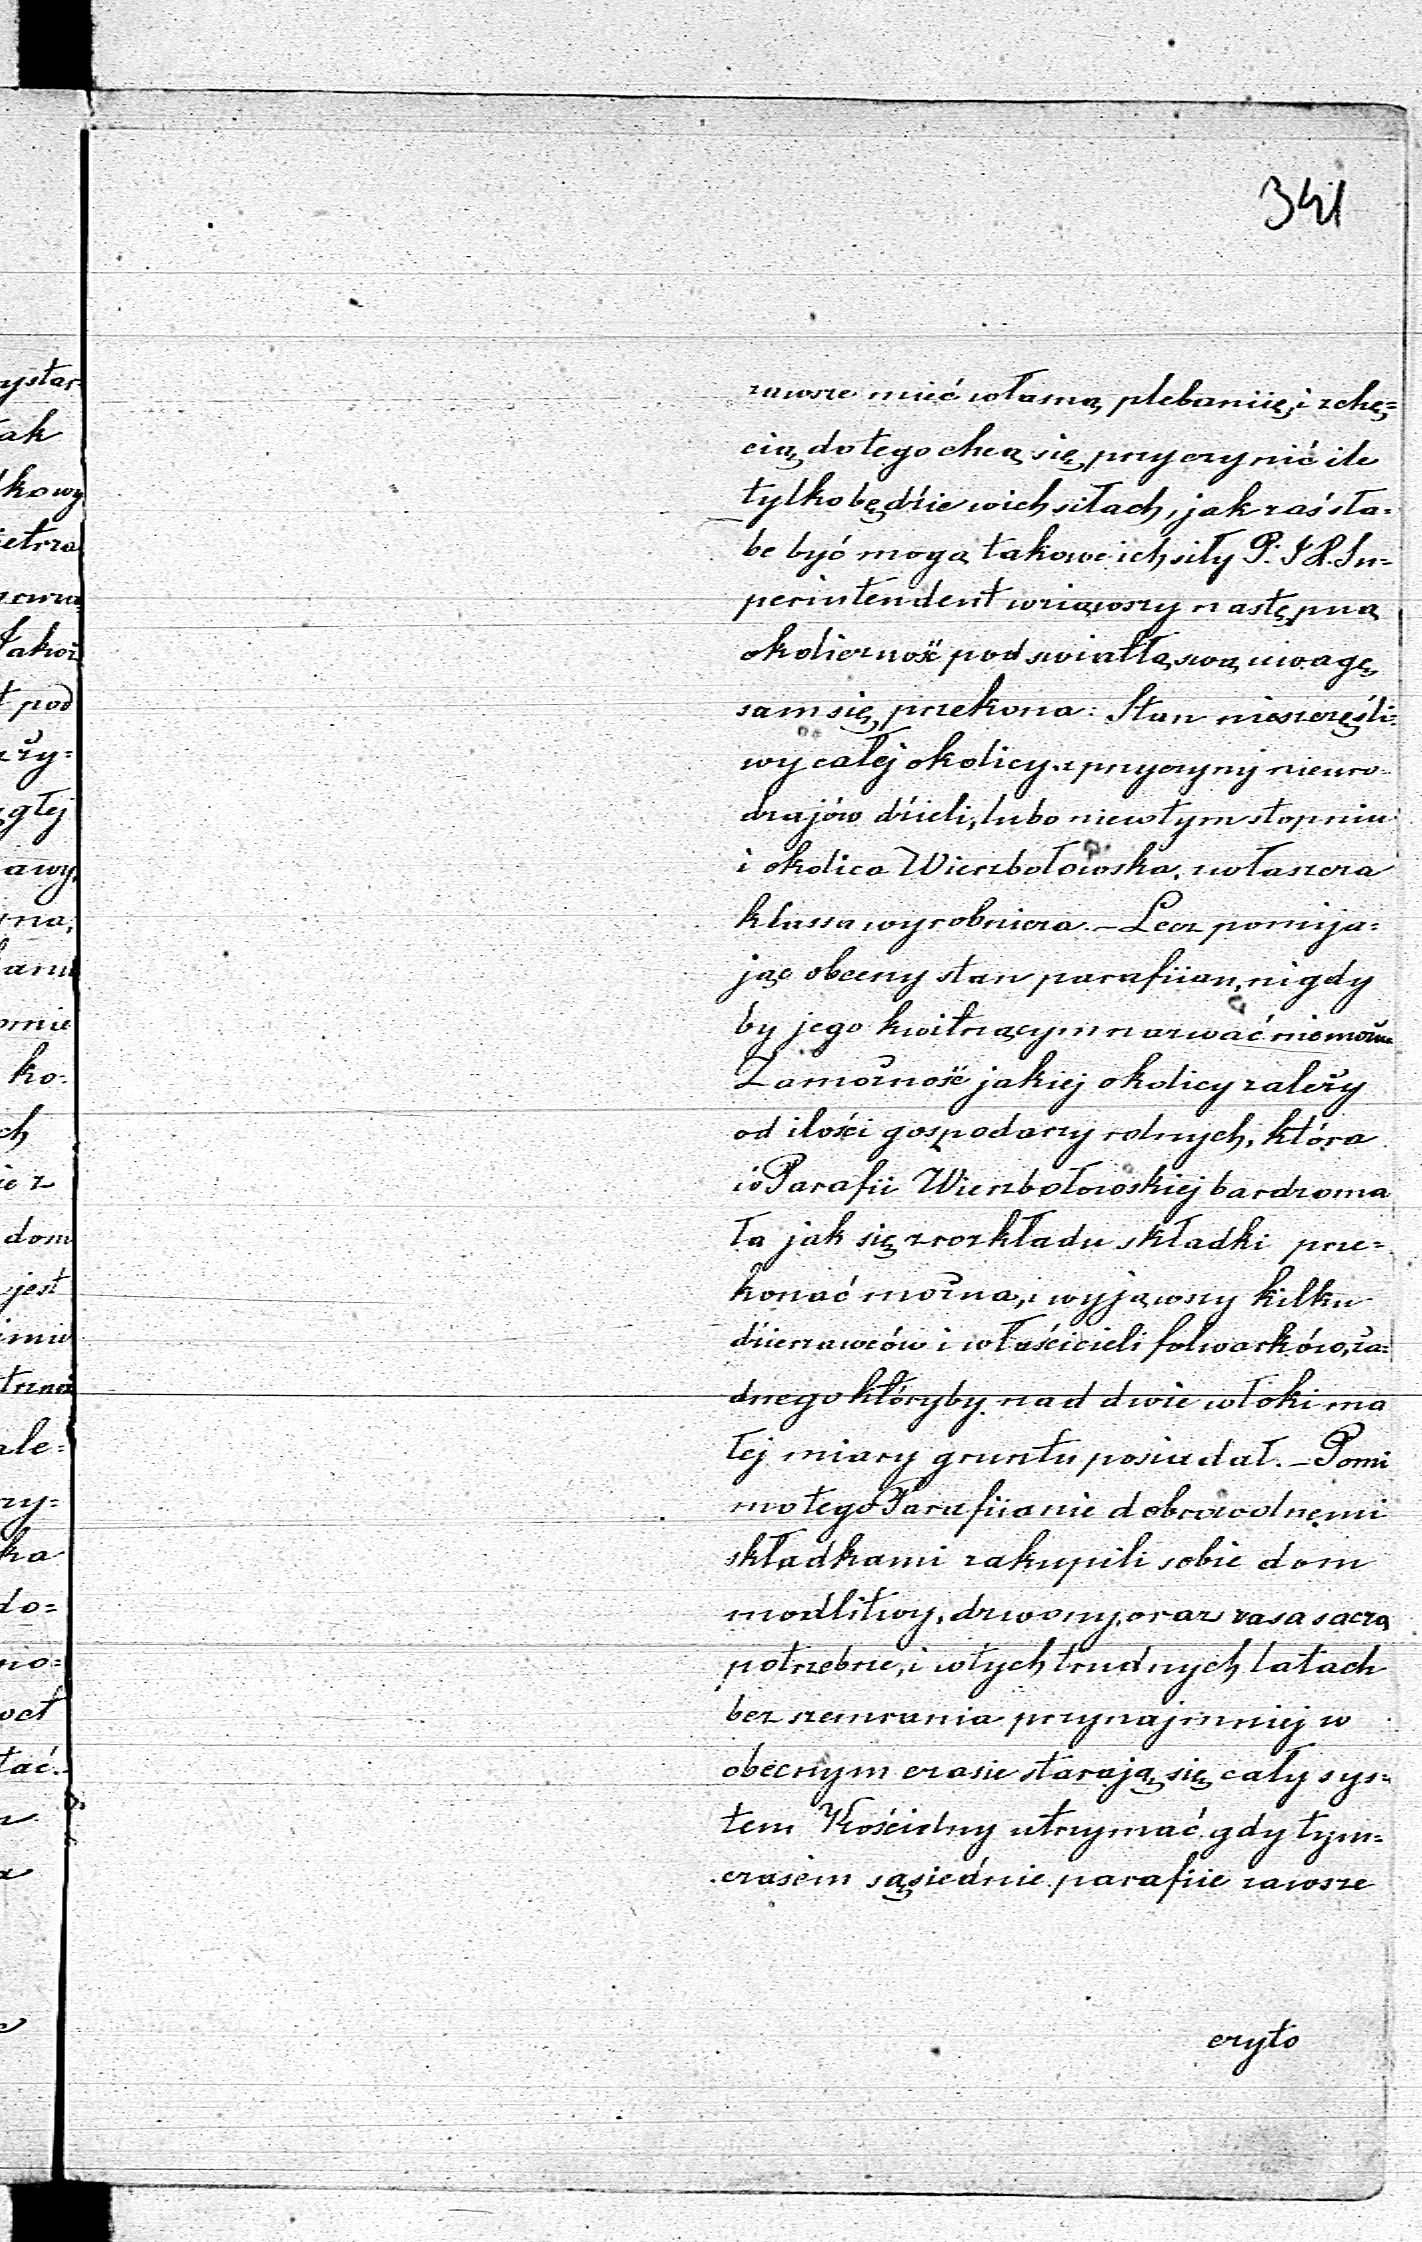 341
zawsze mieć własną plebaniię, i z chę=
cią do tego chcą się przyczynić ile
tylko będzie w ich siłach, jak zaś sła=
be być mogą takowe ich siły P. J X. Su=
perintendent wziąwszy następną
okoliczność pod swiatłą swą uwagę
sam się przekona: Stan nieszczęśli=
wy całéj okolicy z przyczyny nieuro=
dzajów dźieli, lubo nie w tym stopniu
i okolica Wierzbołowska, zwłaszcza
klassa wyrobnicza. – Lecz pomija=
jąc obecny stan parafiian, nigdy
by jego kwitnącym nazwać nie można
Zamożność jakiej okolicy zależy
od ilości gospodarzy rolnych, która
i w Parafii Wierzbołowskiej bardzo ma
ła jak się z rozkładu składki prze=
konać można, i wyjąwszy kilku
dźierzawców i właścicieli folwarków, ża=
dnego któryby nad dwie włoki ma
łéj miary gruntu posiadał. – Pomi
mo tego Parafiianie dobrowolnemi
składkami zakupili sobie dom
modlitwy, dzwony, oraz vasa sacra
potrzebne, i w tych trudnych latach
bez szemrania przynajmniej w
obecnym czasie starają się cały sys=
tem Kościelny utrzymać gdy tym=
czasem sąsiednie parafiie zawsze
czyto
ystar=
tak
kowy
ietrza
Jakoż
t pod
ży=
głéj
awy,
na,
omie
ko=
ch
ie z
dom
jest
imie
ale=
zy=
ka
do=
no=
oct
tać.